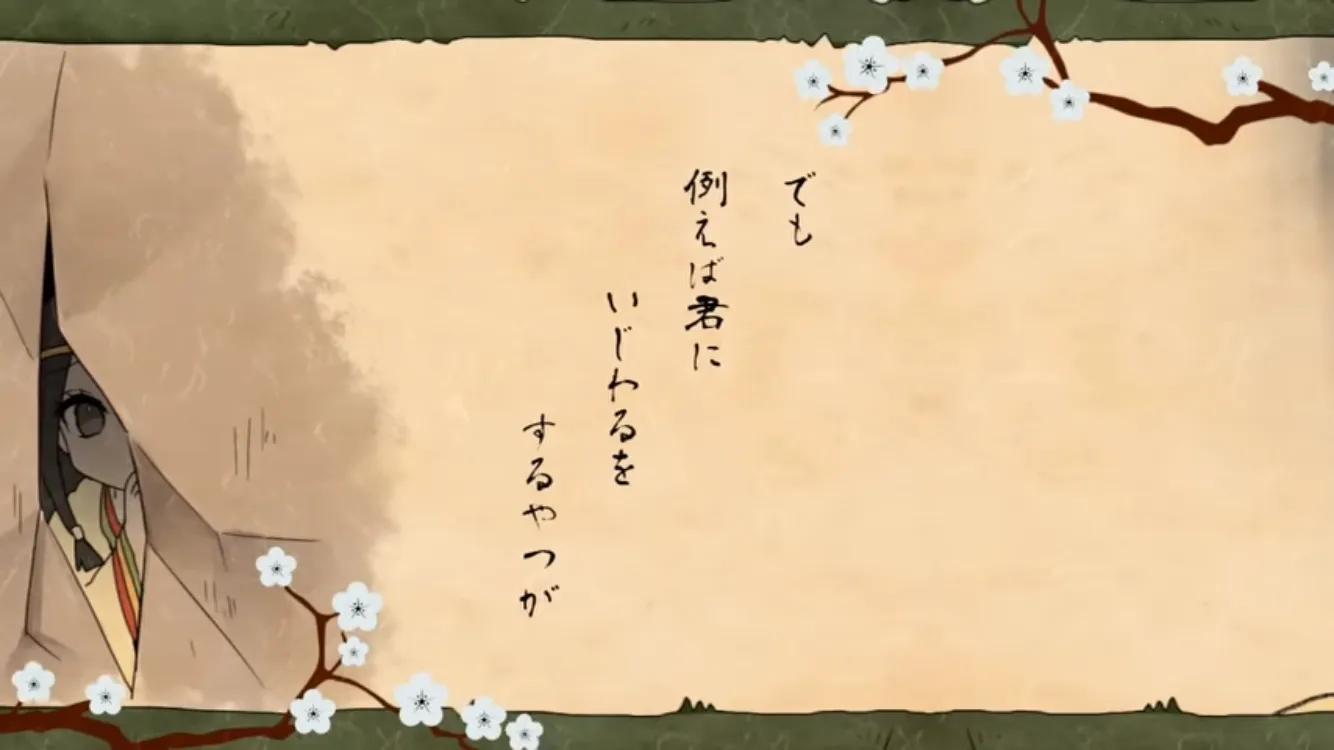 でも
例えば君に
いじわるを
するやつが